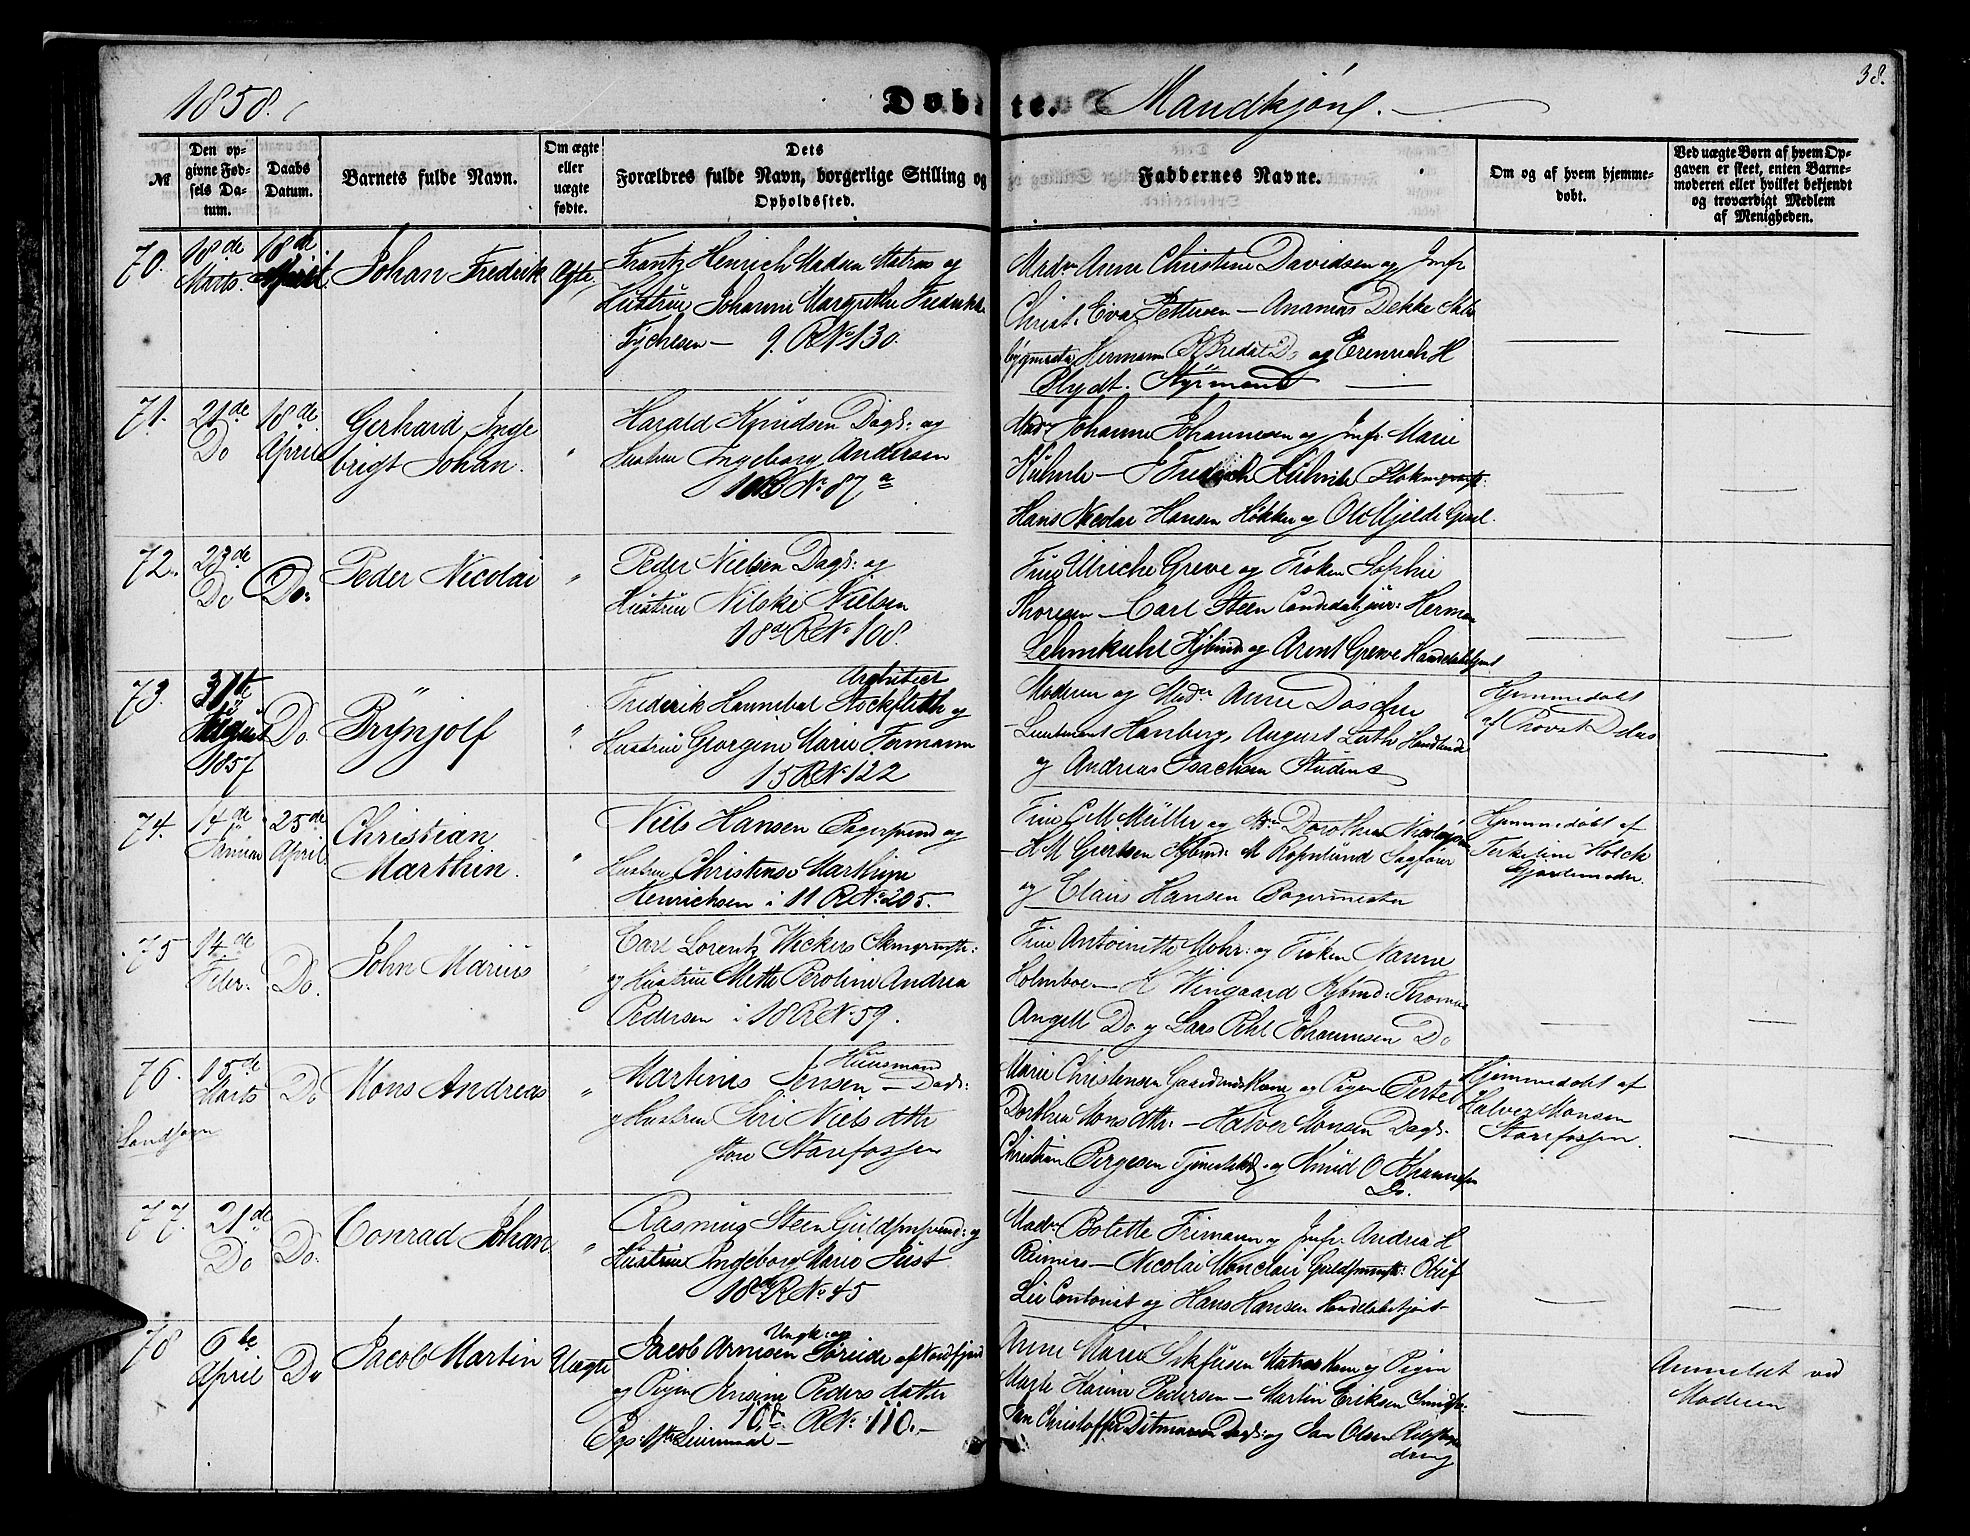 38.
1858.
Døbte. Mandkjøn.
№
Den opgivne Fødsels Datum.
Daabs Datum.
Barnets fulde Navn.
Om ægte eller uægte fødte.
Dets Forældres fulde Navn, borgerlige Stilling og Opholdssted.
Faddernes Navne.
Om og af hvem hjemmedøbt.
Ved uægte Børn af hvem Opgaven er skeet, enten Barnemoderen eller hvilket bekjendt og troværdigt Medlem af Menigheden.
70.
18de Marts.
18de April
Johan Fredrik
Ægte.
Frantz Henrich Madsen Matros og
Hustrue Johanne Margrethe Frederikke
Tychesen — 9. R No 130.
Madm Anne Christine Davidsen og Jmfr
Christ. Eva Pettersen — Ananias Dekke Skibs
bygmester Hermann B Bredal Do og Erenrich H
Blydt. Styrmand
71.
21de Do
18de April
Gerhard Inge
brigt Johan.
"
Harald Knudsen Dags: og
Hustrue Ingeborg Andersen
R No 87 a
Madm Johanne Johannesen og Jmfr. Marie
Kühnle — Fredrich Kühnle
Hans Nicolai Hansen Høkker og Ole Mjelde
72.
23de Do
Do:
Peder Nicolai
"
Peder Nielsen Dags: og
Hustrue Nilske Nielsen
18de R No 108.
Frue Ulriche Greve og Frøken Sophie
Thoresen — Carl Steen Candidat jur: Herman
Lehmkuhl Kjbmd og Arent Greve Handelsbetjent
73.
31te August 1857
Do.
Brynjolf
"
Arbitiect
Frederik Hannebal Stockfleth og
Hustrue Georgine Marie Formann
15 R No 122
Moderen og Madm Anne Döscher
Lieutenant Hanberg, August Luth
og Andreas Isachsen Student
Hjemmedøbt
af Provst Ddas
74.
14de Januar
25de April.
Christian
Marthin.
"
Niels Hansen Bagersvend og
Hustrue Christense Marthine
Henrichsen i 11 R No 205.
Frue C M Müller og Mdm Dorothea
H M Giertsen Kjbmd: M Rosenlund Sagfører
og Claus Hansen Bagermester
Hjemmedøbt af
Terkeline Holck
Gjordemoder.
75
14de Feber.
Do.
John Marius
Carl Lorentz Wickers
og Hustrue Mette Peroline Andrea
Pedersen i 18 R No 59.
Frue Antoinette Mohr: og Frøken Nanne
Holmboe — H Wingaard Kjbmd: Thomas
Angell Do og Lars Pihl Johannesen Do
76.
Landsogn
15de Marts
Do
Mons Andreas
"
Huusmand
Martinus Jensen — Dags:
og Hustrue Siri Niels dttr
store Starefossen
Marie Christensen Gaardmandskone og Pigen Bertel
Dorthea Monsdttr. — Halver Monsen Dags.
Christian Børgesen Tjenestekrl. og Knud O Johannesen
Do.
Hjemmedøbt af
Halver Monsen
Starefossen.
77.
21de Do
Do.
Conrad Johan
"
Rasmus Steen Guldsmsvend: og
Hustrue Ingeborg Marie Just
18de R No 45
Madm Bolette Frimann og Jmfr. Andrea H
Reimers — Nicolai Monclair Guldsmst: Oluf
Lie Contorist og Hans Hansen Handelsbetjent
78
6te April
Do
Jacob Martin
Uægte
Ungk: og
Jacob Arnesen Søreide af Nordfjord
og Pigen Jensine Peders datter
10de R No 110. —
Begs: 1ste Leiermaal —
Anne Marie Sikfusen Matroskone og Pigen
Marte Karine Pedersen — Martin Eriksen
Jan Christoffer Ditmansen Dags: og Jan Olsen Rebslager
dreng
Anmeldt ved
Moderen